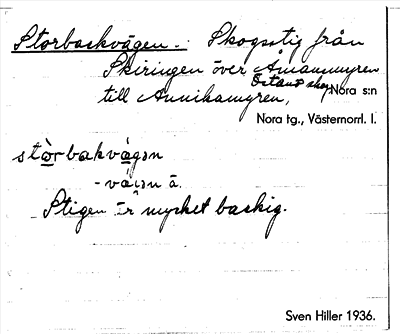 Storbaskvägen. Skogsstig från
Skiringen över Åmansmyren
Östanö skog,
till Annikamyren, Nora s:n
Nora tg., Västernorrl. l.
stò̱rbakvá̱gən
- vä́i̯ən ä.
Stigen är mycket backig.
Sven Hiller 1936.